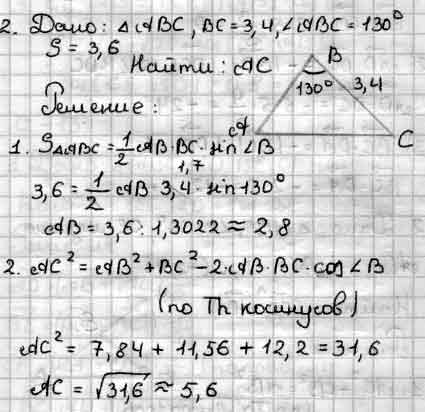 2. Дано: △ABC, BC=3,4, ∠ABC=130°
S=3,6
Найти: AC
B
130°
3,4
A
C
Решение:
1. S△ABC=1/2 AB·BC·sin∠B
1,7
3,6=1/2 AB·3,4·sin130°
AB=3,6:1,3022≈2,8
2. AC²=AB²+BC²-2·AB·BC·cos∠B
(по Th косинусов)
AC²=7,84+11,56+12,2=31,6
AC=√31,6≈5,6